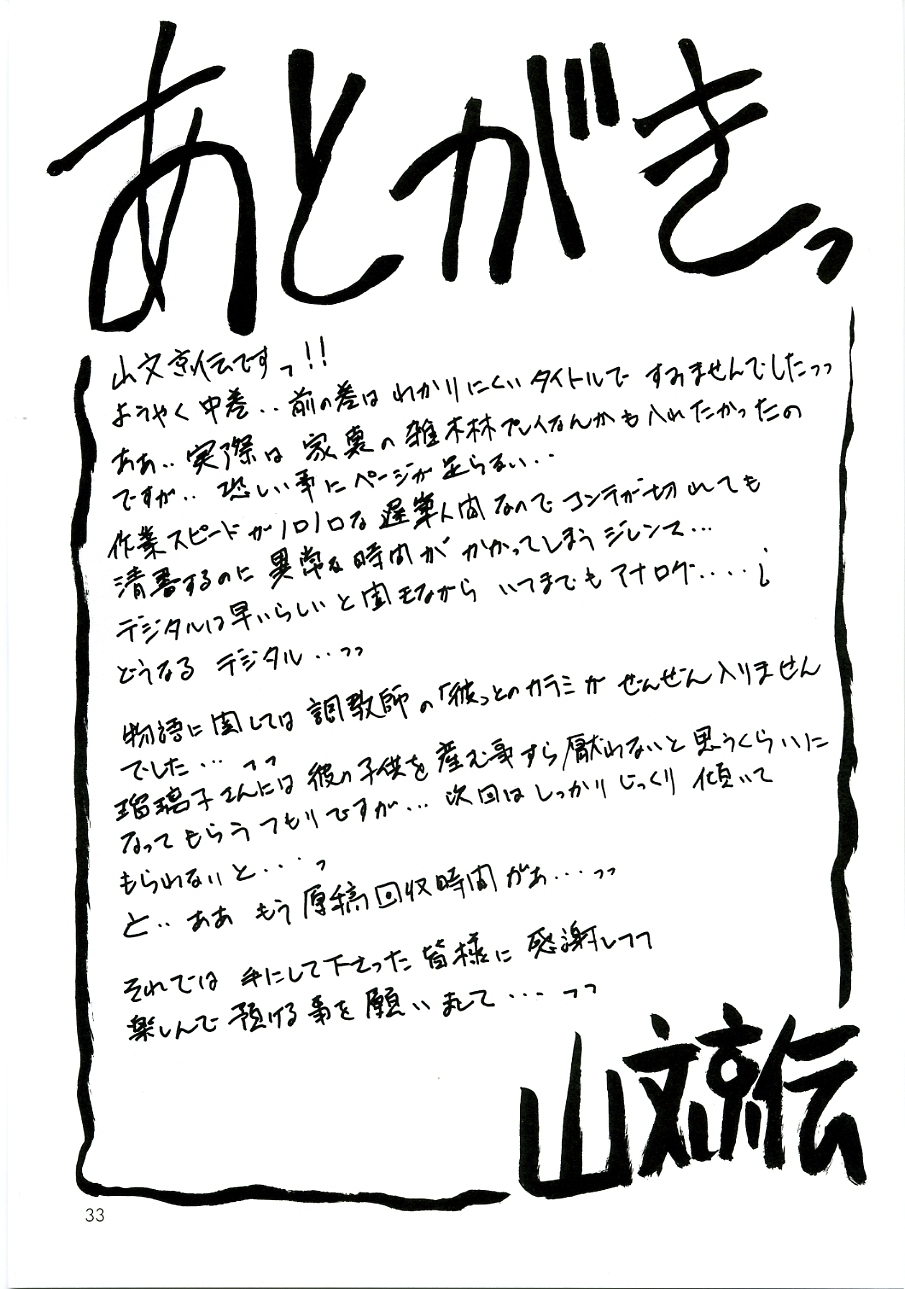 あとがきっ
山文京伝ですっ!!
ようやく中巻‥前の巻はわかりにくいタイトルですみませんでしたっっ
ああ‥実際は家裏の雑木林プレイなんかも入れたかったの
ですが‥恐しい事にページが足らない‥
作業スピードがノロノロな遅筆人間なのでコンテが切れても
清書するのに異常な時間がかかってしまうジレンマ…
デジタルは早いらしいと聞きながらいつまでもアナログ‥‥¡
どうなるデジタル‥っっ
物語に関しては調教師の「彼」とのカラミがぜんぜん入りません
でした…っっ
瑠璃子さんには彼の子供を産む事すら厭わないと思うくらいに
なってもらうつもりですが…次回はしっかりじっくり傾いて
もらわないと…っ
と‥ああもう原稿回収時間がぁ…っっ
それでは手にして下さった皆様に感謝しっっ
楽しんで預ける事を願いまして…っっ
山文京伝
33